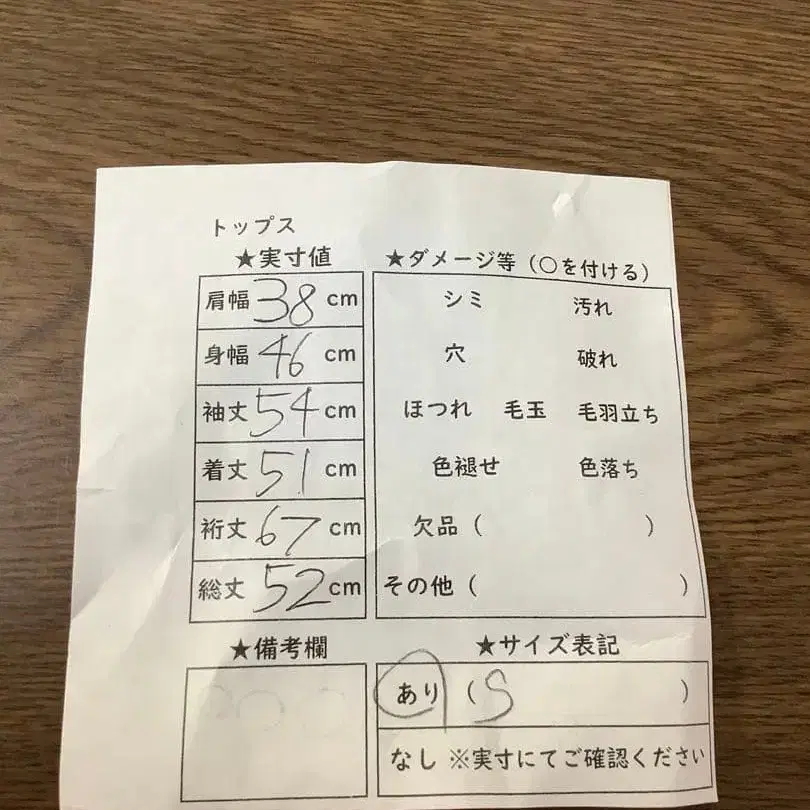 トップス
★実寸値
肩幅 38 cm
身幅 46 cm
袖丈 54 cm
着丈 51 cm
裄丈 67 cm
総丈 52 cm
★ダメージ等（○を付ける）
シミ 汚れ
穴 破れ
ほつれ 毛玉 毛羽立ち
色褪せ 色落ち
欠品（ ）
その他（ ）
★備考欄
★サイズ表記
あり（S ）
なし ※実寸にてご確認ください